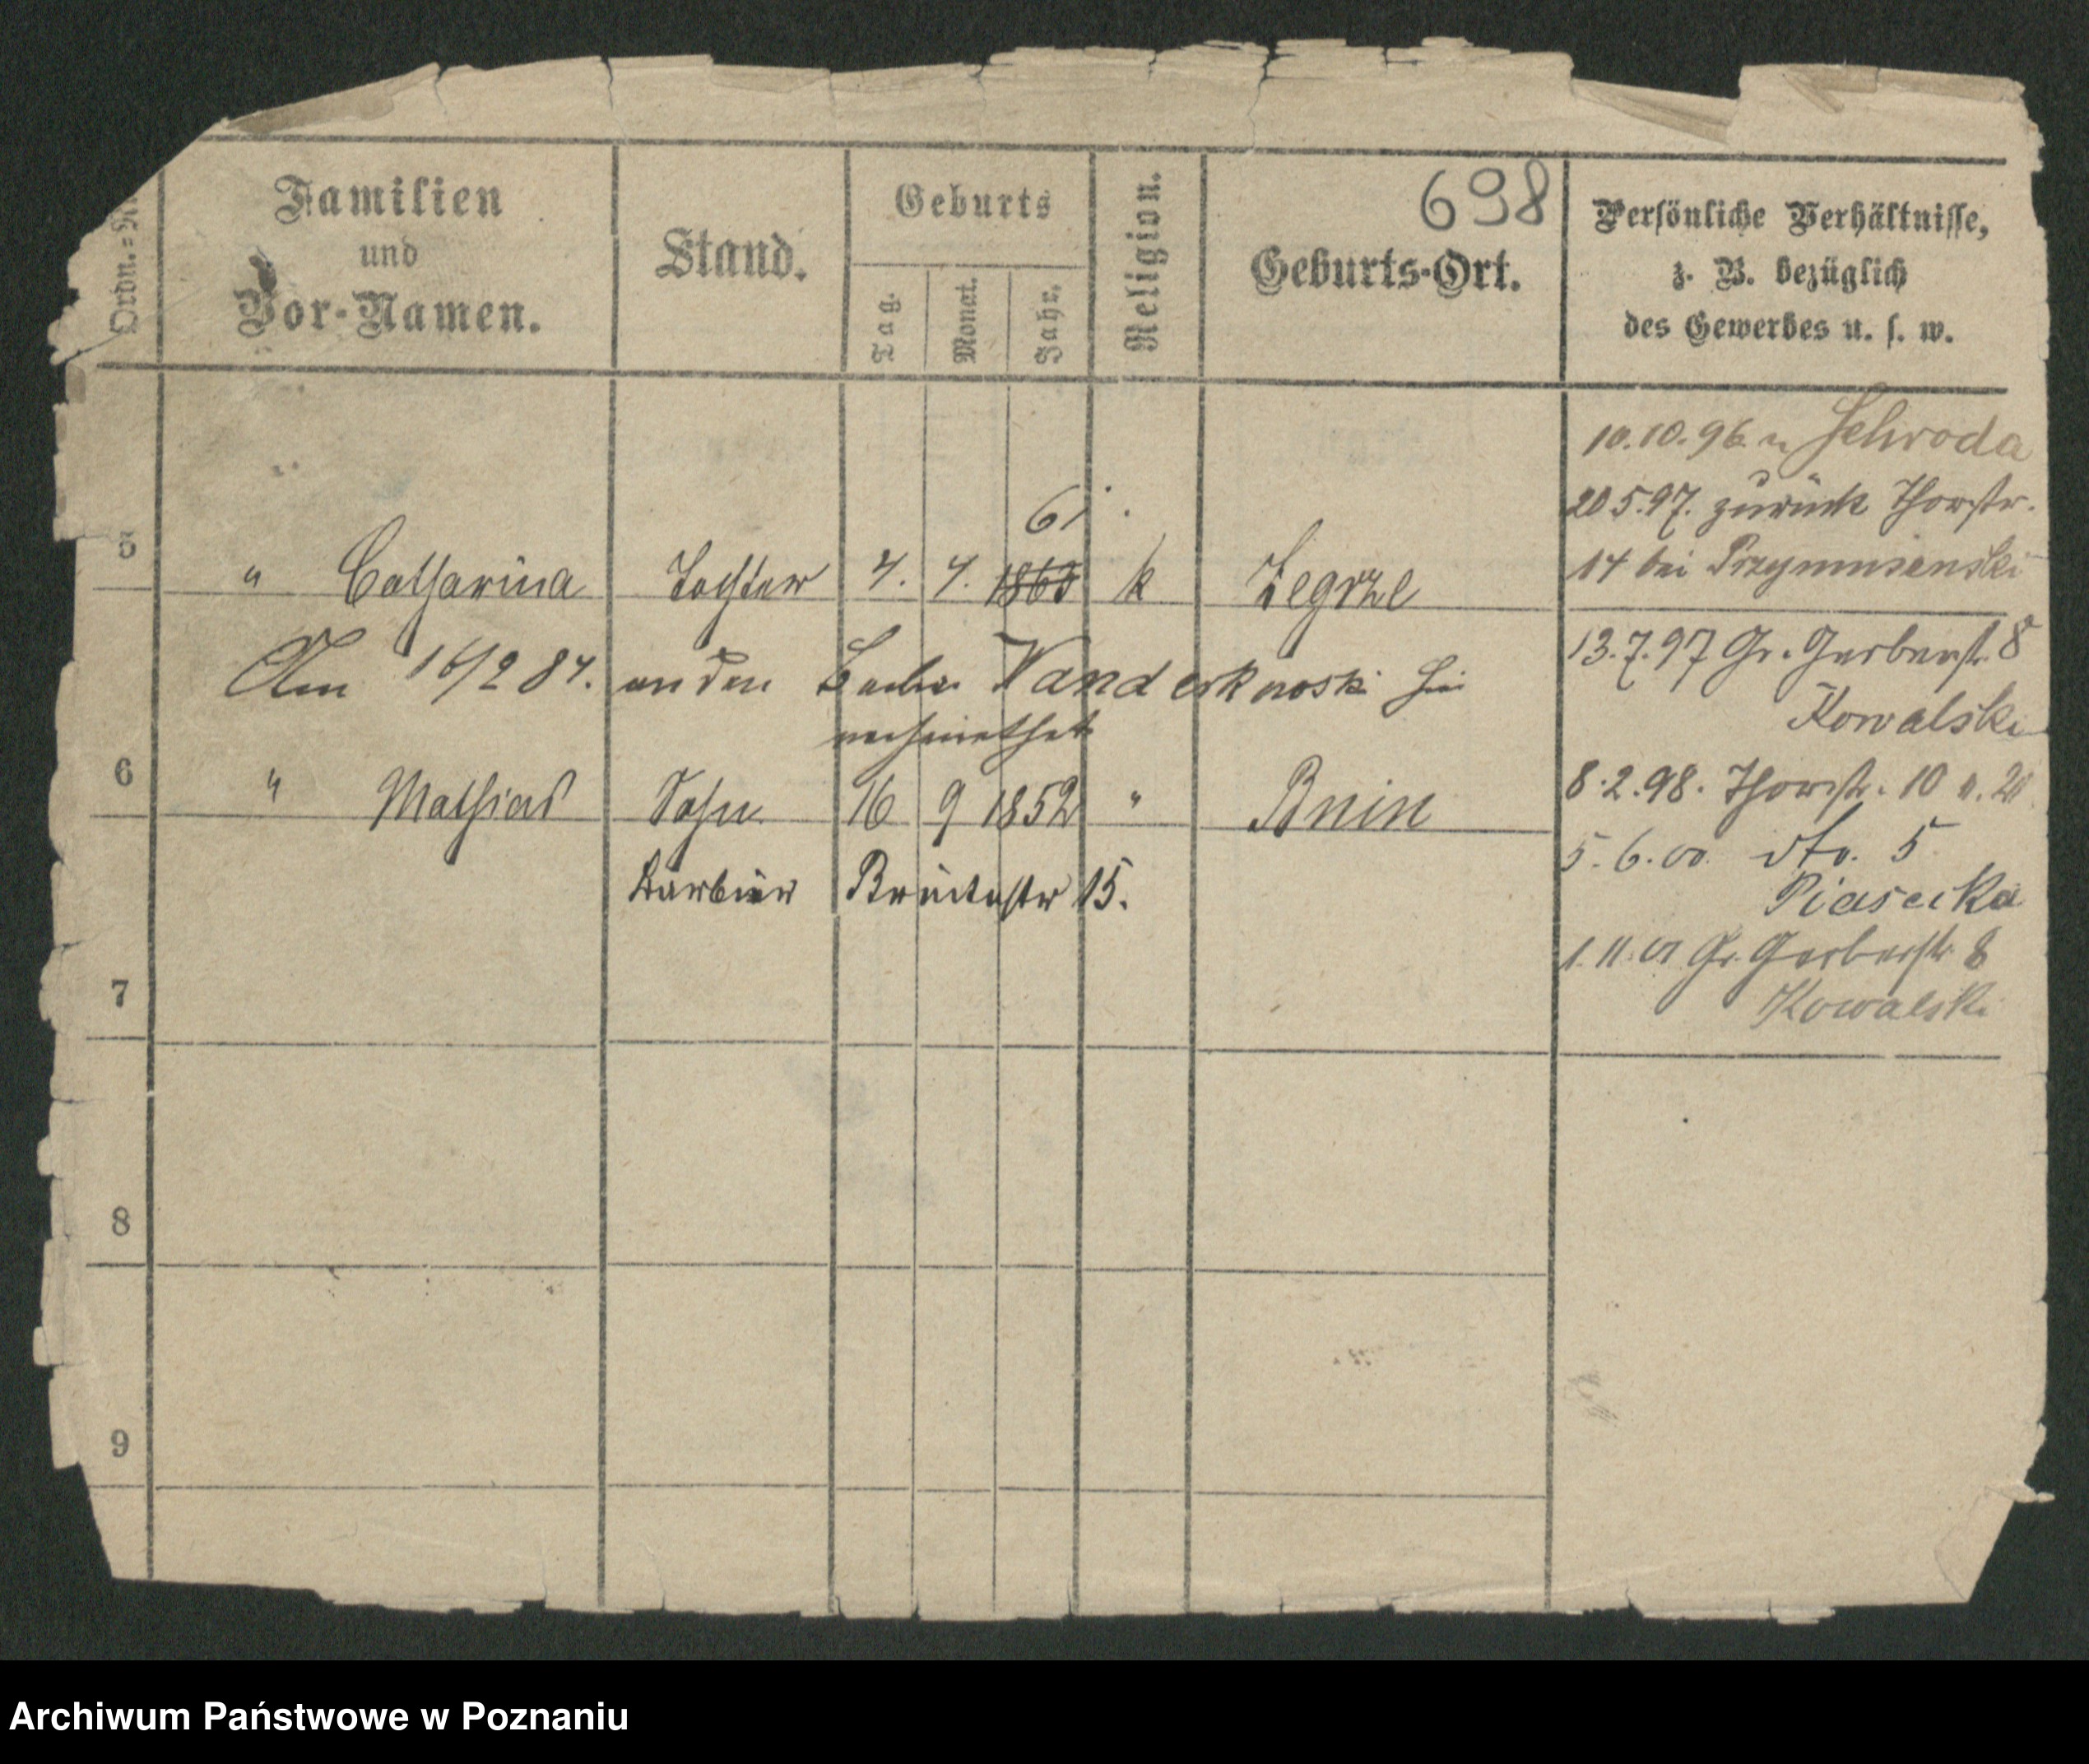 698
Ordn.=N
Familien und Vor-Namen.
Stand.
Geburts
Tag.
Monat.
Jahr.
Religion.
Geburts-Ort.
Persönliche Verhältnisse,
z. B. bezüglich
des Gewerbes u. s. w.
10.10.96 n Schroda
20 5.97. zurück Thorstr.
14 bei Przymusenski
61.
5 " Catharina Tochter 4. 4. 1863 k Zegrze
13.7.97 Gr. Gerberstr. 8
Am 16/2 84. an den Wanderknoski
verheirathet
Kowalski
6 " Mathias Sohn 16 9 1852 " Bnin
8.2.98. Thorstr. 10 n. 20
5.6.00. dto. 5
Barbier Brückestr 15.
Piasecka
1.11.01 Gr. Gerberstr. 8
7
Kowalski
8
9
Archiwum Państwowe w Poznaniu